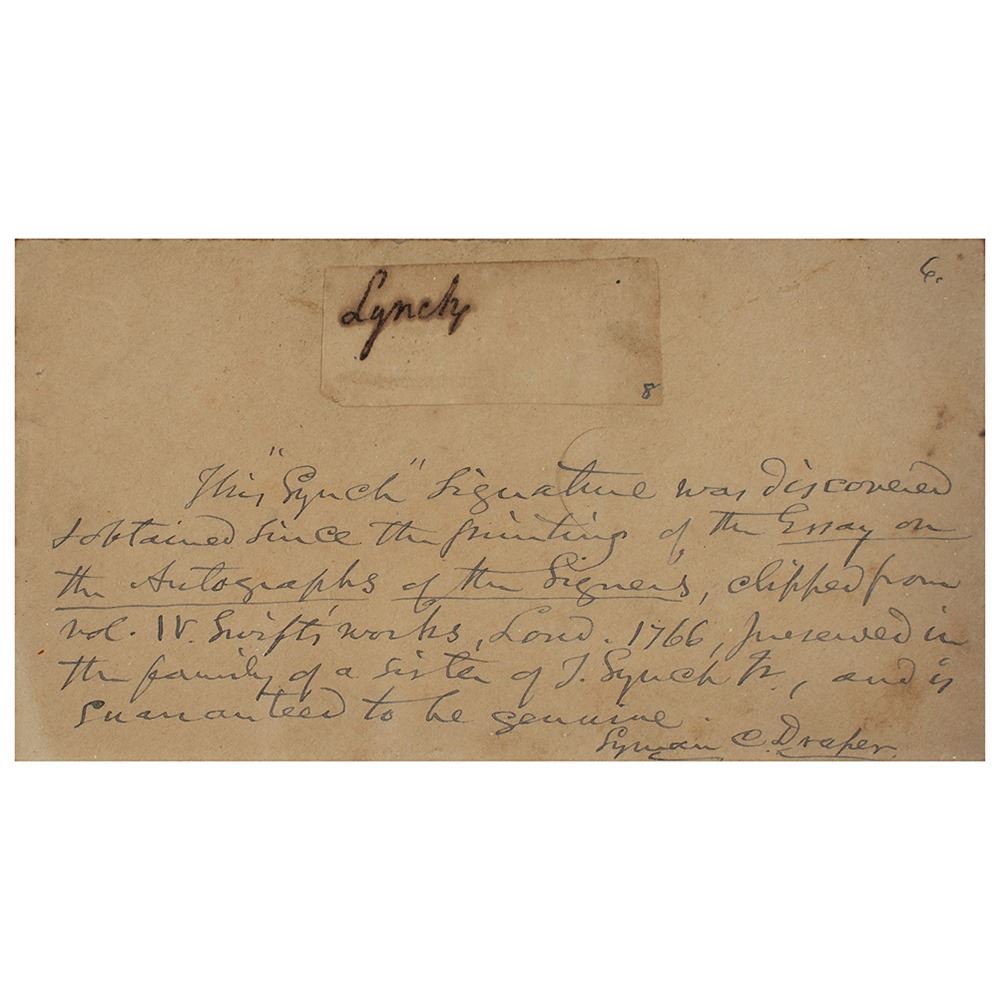 6.
Lynch
8
This "Lynch" signature was discovered
& obtained since the printing of the Essay on
the Autographs of the Signers, clipped from
vol. IV. Swift's works, Lond. 1766, preserved in
the family of a sister of T. Lynch Jr., and is
guaranteed to be genuine.
Lyman C. Draper.